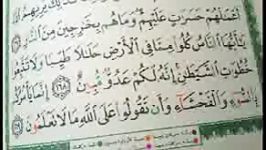 أَعْمَٰلَهُمْ حَسَرَٰتٍ عَلَيْهِمْ وَمَا هُم بِخَٰرِجِينَ مِنَ النَّارِ
يَٰٓأَيُّهَا النَّاسُ كُلُوا مِمَّا فِى الْأَرْضِ حَلَٰلًا طَيِّبًا وَلَا تَتَّبِعُوا
خُطُوَٰتِ الشَّيْطَٰنِ إِنَّهُ لَكُمْ عَدُوٌّ مُّبِينٌ ١٦٨ إِنَّمَا يَأْمُرُكُم
بِالسُّوٓءِ وَالْفَحْشَآءِ وَأَن تَقُولُوا عَلَى اللَّهِ مَا لَا تَعْلَمُونَ